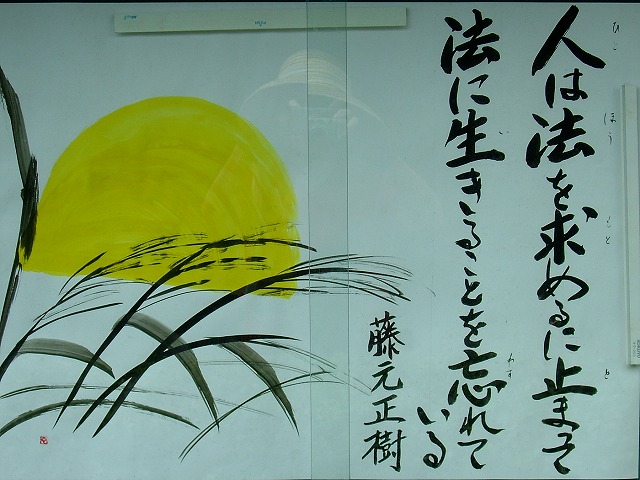 ひと ほう もと と
人は法を求めるに止まって
い わす
法に生きることを忘れて
いる
藤元正樹